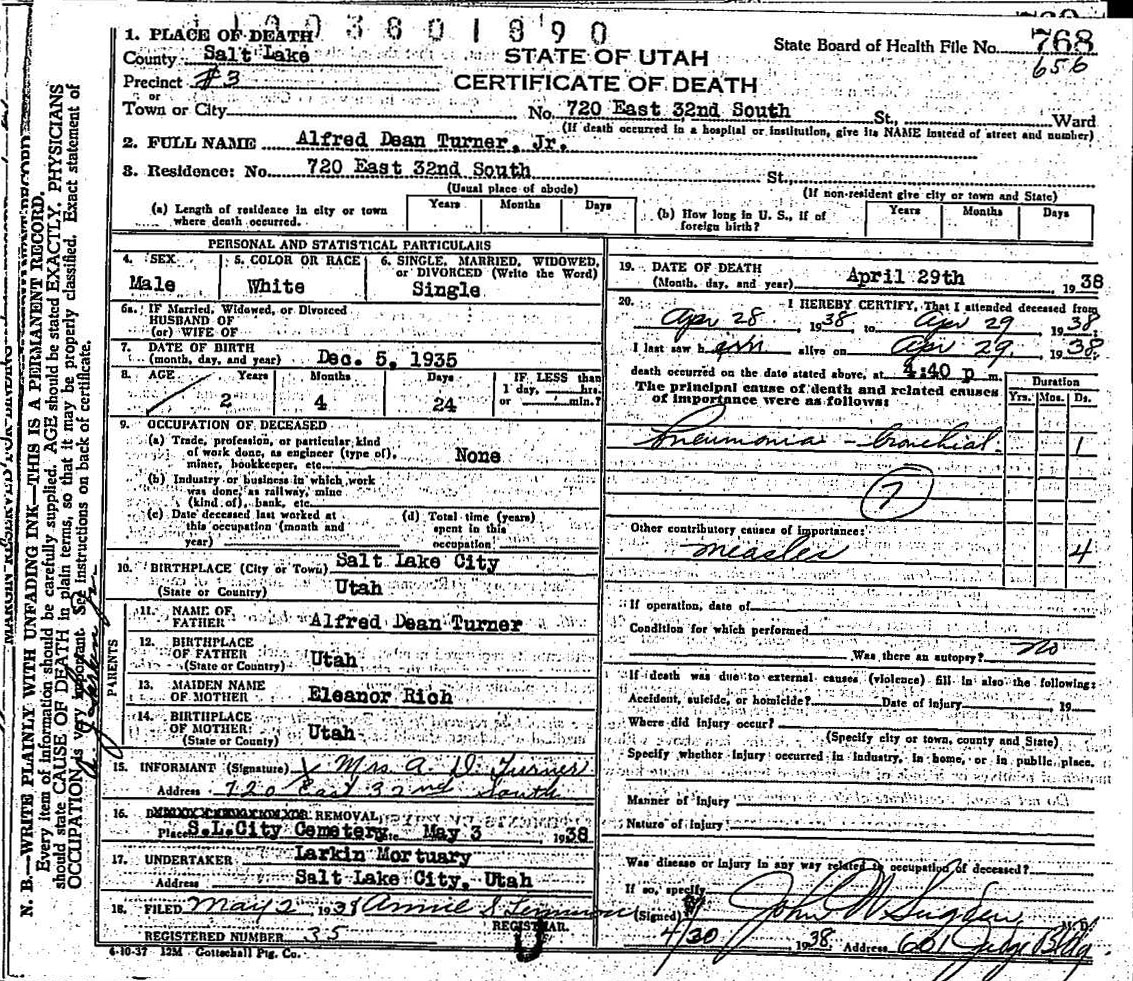 1 1 0 0 3 8 0 1 8 9 0
1. PLACE OF DEATH
County Salt Lake
STATE OF UTAH
State Board of Health File No. 768
656
Precinct #3
CERTIFICATE OF DEATH
or
Town or City No. 720 East 32nd South St., Ward
(If death occurred in a hospital or institution, give its NAME instead of street and number)
2. FULL NAME Alfred Dean Turner, Jr.
3. Residence: No. 720 East 32nd South St.,
(Usual place of abode) (If non-resident give city or town and State)
(a) Length of residence in city or town where death occurred. Years Months Days
(b) How long in U. S., if of foreign birth? Years Months Days
PERSONAL AND STATISTICAL PARTICULARS
4. SEX 5. COLOR OR RACE 6. SINGLE, MARRIED, WIDOWED, or DIVORCED (Write the Word)
Male White Single
6a. IF Married, Widowed, or Divorced
HUSBAND OF
(or) WIFE OF
7. DATE OF BIRTH
(month, day, and year) Dec. 5, 1935
8. AGE Years Months Days IF LESS than
1 day, hrs.
or min.?
2 4 24
9. OCCUPATION OF DECEASED
(a) Trade, profession, or particular kind
of work done, as engineer (type of),
miner, bookkeeper, etc. None
(b) Industry or business in which work
was done, as railway, mine
(kind of), bank, etc.
(c) Date deceased last worked at
this occupation (month and
year)
(d) Total time (years)
spent in this
occupation
10. BIRTHPLACE (City or Town) Salt Lake City
(State or Country) Utah
PARENTS
11. NAME OF
FATHER Alfred Dean Turner
12. BIRTHPLACE
OF FATHER
(State or Country) Utah
13. MAIDEN NAME
OF MOTHER Eleanor Rich
14. BIRTHPLACE
OF MOTHER
(State or Country) Utah
15. INFORMANT (Signature) X Mrs A. D. Turner
Address 720 East 32nd South
16. REMOVAL
Place S.L.City Cemetery May 3 1938
17. UNDERTAKER Larkin Mortuary
Address Salt Lake City, Utah
18. FILED May 2 1938 Annie S
REGISTRAR.
REGISTERED NUMBER 35
4-10-37 12M Gottschall Ptg. Co.
19. DATE OF DEATH
(Month, day, and year) April 29th 1938
20. I HEREBY CERTIFY, That I attended deceased from
Apr 28, 1938 to Apr 29 1938
I last saw him alive on Apr 29, 1938
death occurred on the date stated above, at 4:40 p m.
The principal cause of death and related causes
of importance were as follows:
Duration
Yrs. Mos. Ds.
Pneumonia - bronchial. 1
7
Other contributory causes of importance:
measles 4
If operation, date of
Condition for which performed
Was there an autopsy? no
If death was due to external causes (violence) fill in also the following:
Accident, suicide, or homicide? Date of injury 19
Where did injury occur?
(Specify city or town, county and State)
Specify whether injury occurred in industry, in home, or in public place.
Manner of injury
Nature of injury
Was disease or injury in any way related to occupation of deceased?
If so, specify
(Signed) John W Sugden M. D.
4/30 1938 Address 601 Judge Bldg.
N. B.—WRITE PLAINLY WITH UNFADING INK—THIS IS A PERMANENT RECORD.
Every item of information should be carefully supplied. AGE should be stated EXACTLY. PHYSICIANS
should state CAUSE OF DEATH in plain terms, so that it may be properly classified. Exact statement of
OCCUPATION is very important. See instructions on back of certificate.